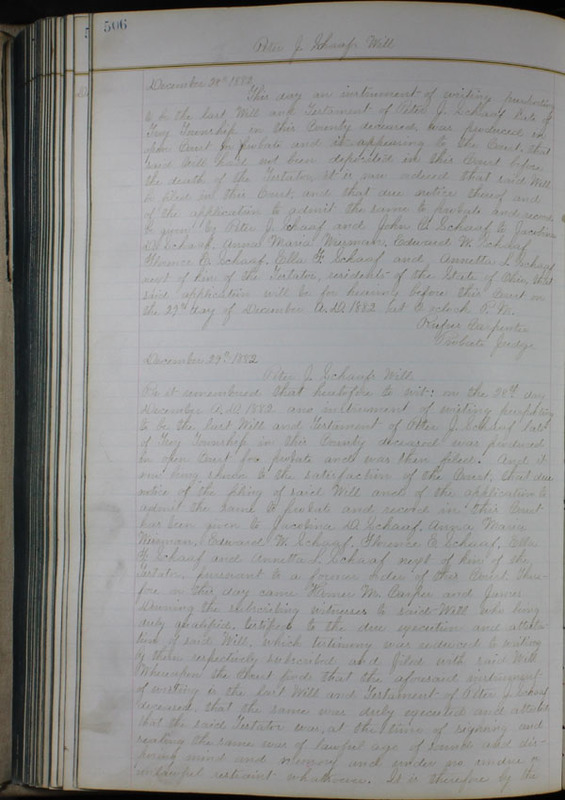 506
Peter J. Schaafs Will
December 28th 1882
This day an instrument of writing purporting
to be the last Will and Testament of Peter J. Schaaf late of
Troy Township in this County deceased, was produced in
open Court for probate and it appearing to the Court that
said Will had not been deposited in this Court before
the death of the Testator it is now ordered that said Will
be filed in this Court and that due notice thereof and
of the application to admit the same to probate and record
be given by Peter J. Schaaf and John C. Schaaf to Jacobina
D. Schaaf, Anna Maria Weyman, Edward W. Schaaf
Florence E. Schaaf, Ella F. Schaaf and Annetta L. Schaaf
next of kin of the Testator, residents of the State of Ohio, that
said application will be for hearing before this Court on
the 29th day of December A.D. 1882 at o'clock P.M.
Rufus Carpenter
Probate Judge
December 29th 1882
Peter J. Schaafs Will
Be it remembered that heretofore to wit: on the 28th day
December A.D. 1882 an instrument of writing purporting
to be the last Will and Testament of Peter J. Schaaf late
of Troy Township in this County deceased was produced
in open Court for probate and was then filed. And it
now being shown to the satisfaction of the Court, that due
notice of the filing of said Will and of the application to
admit the same to probate and record in this Court
has been given to Jacobina D. Schaaf, Anna Maria
Weyman, Edward W. Schaaf, Florence E. Schaaf, Ella
F. Schaaf and Annetta L. Schaaf next of kin of the
testator, pursuant to a former order of this Court There-
fore on this day came W. and James
the subscribing witnesses to said Will who being
duly qualified, testified to the due execution and attesta-
tion of said Will, which testimony was reduced to writing
by them respectively subscribed and filed with said Will
Whereupon the Court find that the aforesaid instrument
of writing is the last Will and Testament of Peter J. Schaaf
deceased, that the same was duly executed and attested
that the said Testator was, at the time of signing and
sealing the same was of lawful age of sound and dis-
posing mind and memory and under no undue or
unlawful restraint whatsoever. It is therefore by the